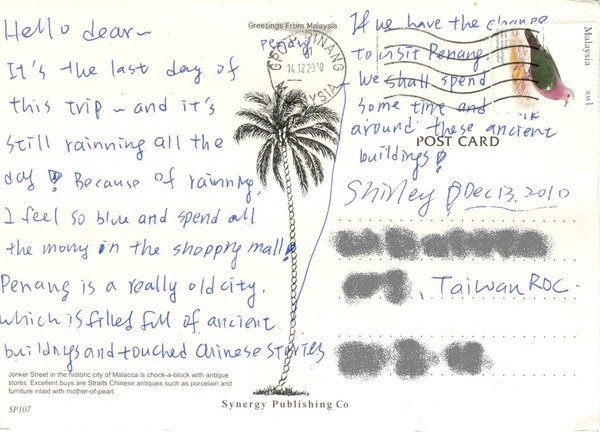 Greetings From Malaysia
Hello dear~
It's the last day of
this trip ~ and it's
still rainning all the
day! Because of rainning,
I feel so blue and spend all
the mony in the shoppng mall!
Penang is a really old city,
which is filled full of ancient
buildings and touched Chinese stories
Penang
If we have the change
to visit Penang,
We shall spend
some time and walk
around these ancient
buildings!
Shirley @ Dec 13. 2010
, Taiwan ROC.
GPO P. PINANG
14 12 2010
MALAYSIA
Malaysia
RM1
POST CARD
Jonker Street in the historic city of Malacca is chock-a-block with antique
stores. Excellent buys are Straits Chinese antiques such as porcelain and
furniture inlaid with mother-of-pearl.
SP107
Synergy Publishing Co